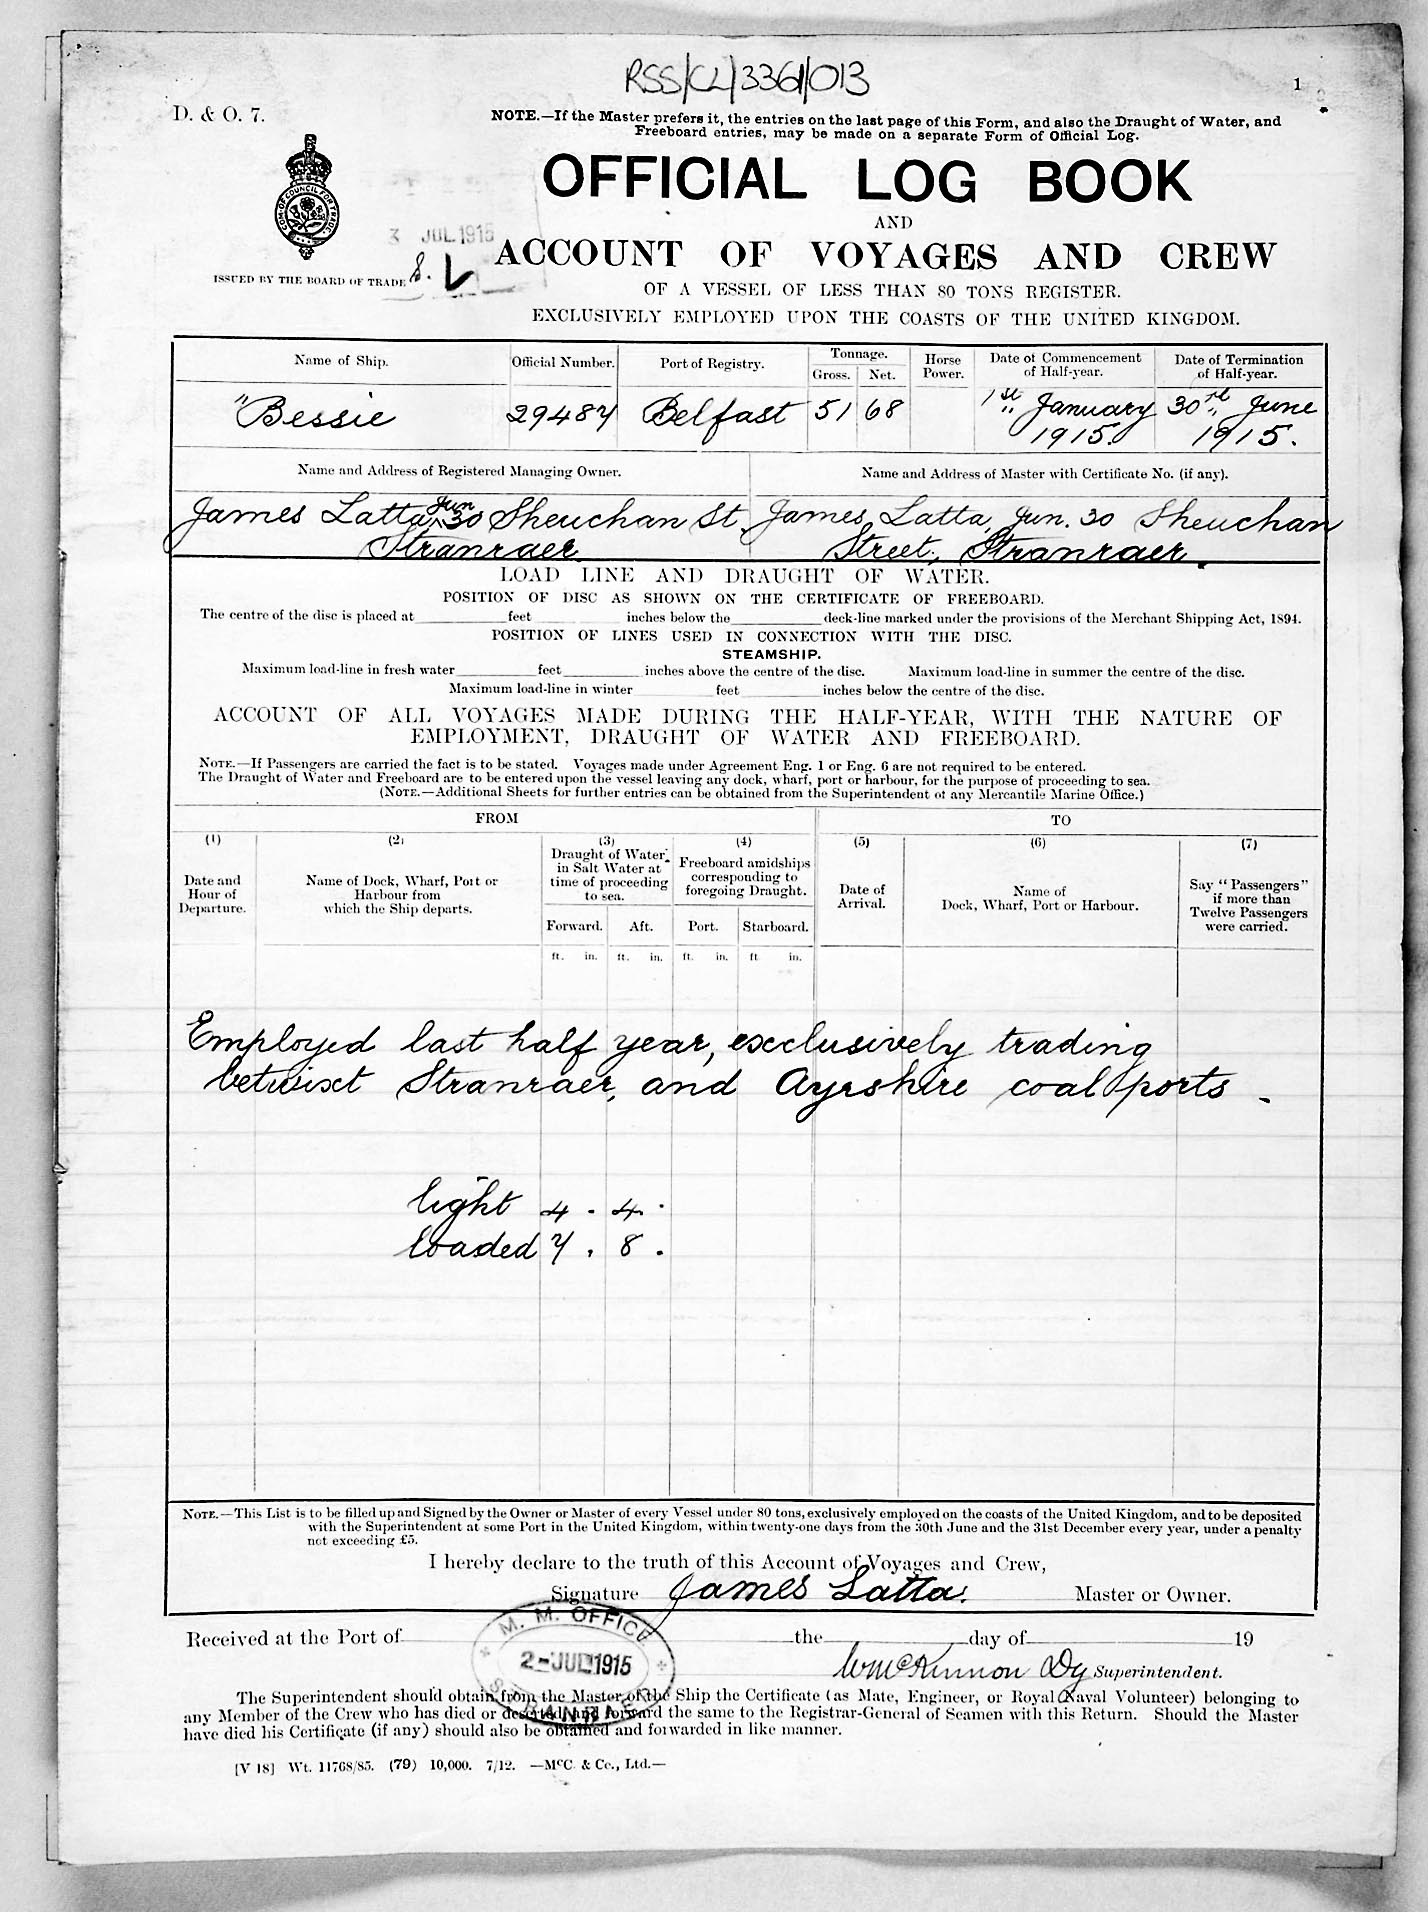 RSS/CL/3361/013
1
D. & O. 7.
NOTE.—If the Master prefers it, the entries on the last page of this Form, and also the Draught of Water, and
Freeboard entries, may be made on a separate Form of Official Log.
OFFICIAL LOG BOOK
AND
3 JUL 1915
ACCOUNT OF VOYAGES AND CREW
ISSUED BY THE BOARD OF TRADE
OF A VESSEL OF LESS THAN 80 TONS REGISTER.
EXCLUSIVELY EMPLOYED UPON THE COASTS OF THE UNITED KINGDOM.
Name of Ship. Official Number. Port of Registry. Tonnage. Gross. Net. Horse Power. Date of Commencement of Half-year. Date of Termination of Half-year.
"Bessie 29487 Belfast 51 68 1st January 30th June
1915. 1915.
Name and Address of Registered Managing Owner. Name and Address of Master with Certificate No. (if any).
James Latta Jun 30 Sheuchan St James Latta, Jun. 30 Sheuchan
Stranraer Street, Stranraer.
LOAD LINE AND DRAUGHT OF WATER.
POSITION OF DISC AS SHOWN ON THE CERTIFICATE OF FREEBOARD.
The centre of the disc is placed at feet inches below the deck-line marked under the provisions of the Merchant Shipping Act, 1894.
POSITION OF LINES USED IN CONNECTION WITH THE DISC.
STEAMSHIP.
Maximum load-line in fresh water feet inches above the centre of the disc. Maximum load-line in summer the centre of the disc.
Maximum load-line in winter feet inches below the centre of the disc.
ACCOUNT OF ALL VOYAGES MADE DURING THE HALF-YEAR, WITH THE NATURE OF
EMPLOYMENT, DRAUGHT OF WATER AND FREEBOARD.
NOTE.—If Passengers are carried the fact is to be stated. Voyages made under Agreement Eng. 1 or Eng. 6 are not required to be entered.
The Draught of Water and Freeboard are to be entered upon the vessel leaving any dock, wharf, port or harbour, for the purpose of proceeding to sea.
(NOTE.—Additional Sheets for further entries can be obtained from the Superintendent of any Mercantile Marine Office.)
FROM TO
(1) (2) (3) (4) (5) (6) (7)
Date and Hour of Departure.
Name of Dock, Wharf, Port or Harbour from which the Ship departs.
Draught of Water in Salt Water at time of proceeding to sea.
Freeboard amidships corresponding to foregoing Draught.
Date of Arrival.
Name of Dock, Wharf, Port or Harbour.
Say "Passengers" if more than Twelve Passengers were carried.
Forward. Aft. Port. Starboard.
ft. in. ft. in. ft. in. ft in.
Employed last half year, exclusively trading
betwixt Stranraer, and Ayrshire coal ports -
light 4 . 4.
loaded 7 . 8 .
NOTE.—This List is to be filled up and Signed by the Owner or Master of every Vessel under 80 tons, exclusively employed on the coasts of the United Kingdom, and to be deposited
with the Superintendent at some Port in the United Kingdom, within twenty-one days from the 30th June and the 31st December every year, under a penalty
not exceeding £5.
I hereby declare to the truth of this Account of Voyages and Crew,
Signature James Latta. Master or Owner.
M. M. OFFICE
Received at the Port of the day of 19
2-JUL 1915
STRANRAER
Wm McKinnon Dy Superintendent.
The Superintendent should obtain from the Master of the Ship the Certificate (as Mate, Engineer, or Royal Naval Volunteer) belonging to
any Member of the Crew who has died or deserted, and forward the same to the Registrar-General of Seamen with this Return. Should the Master
have died his Certificate (if any) should also be obtained and forwarded in like manner.
[V 18] Wt. 11768/85. (79) 10,000. 7/12. —McC. & Co., Ltd.—